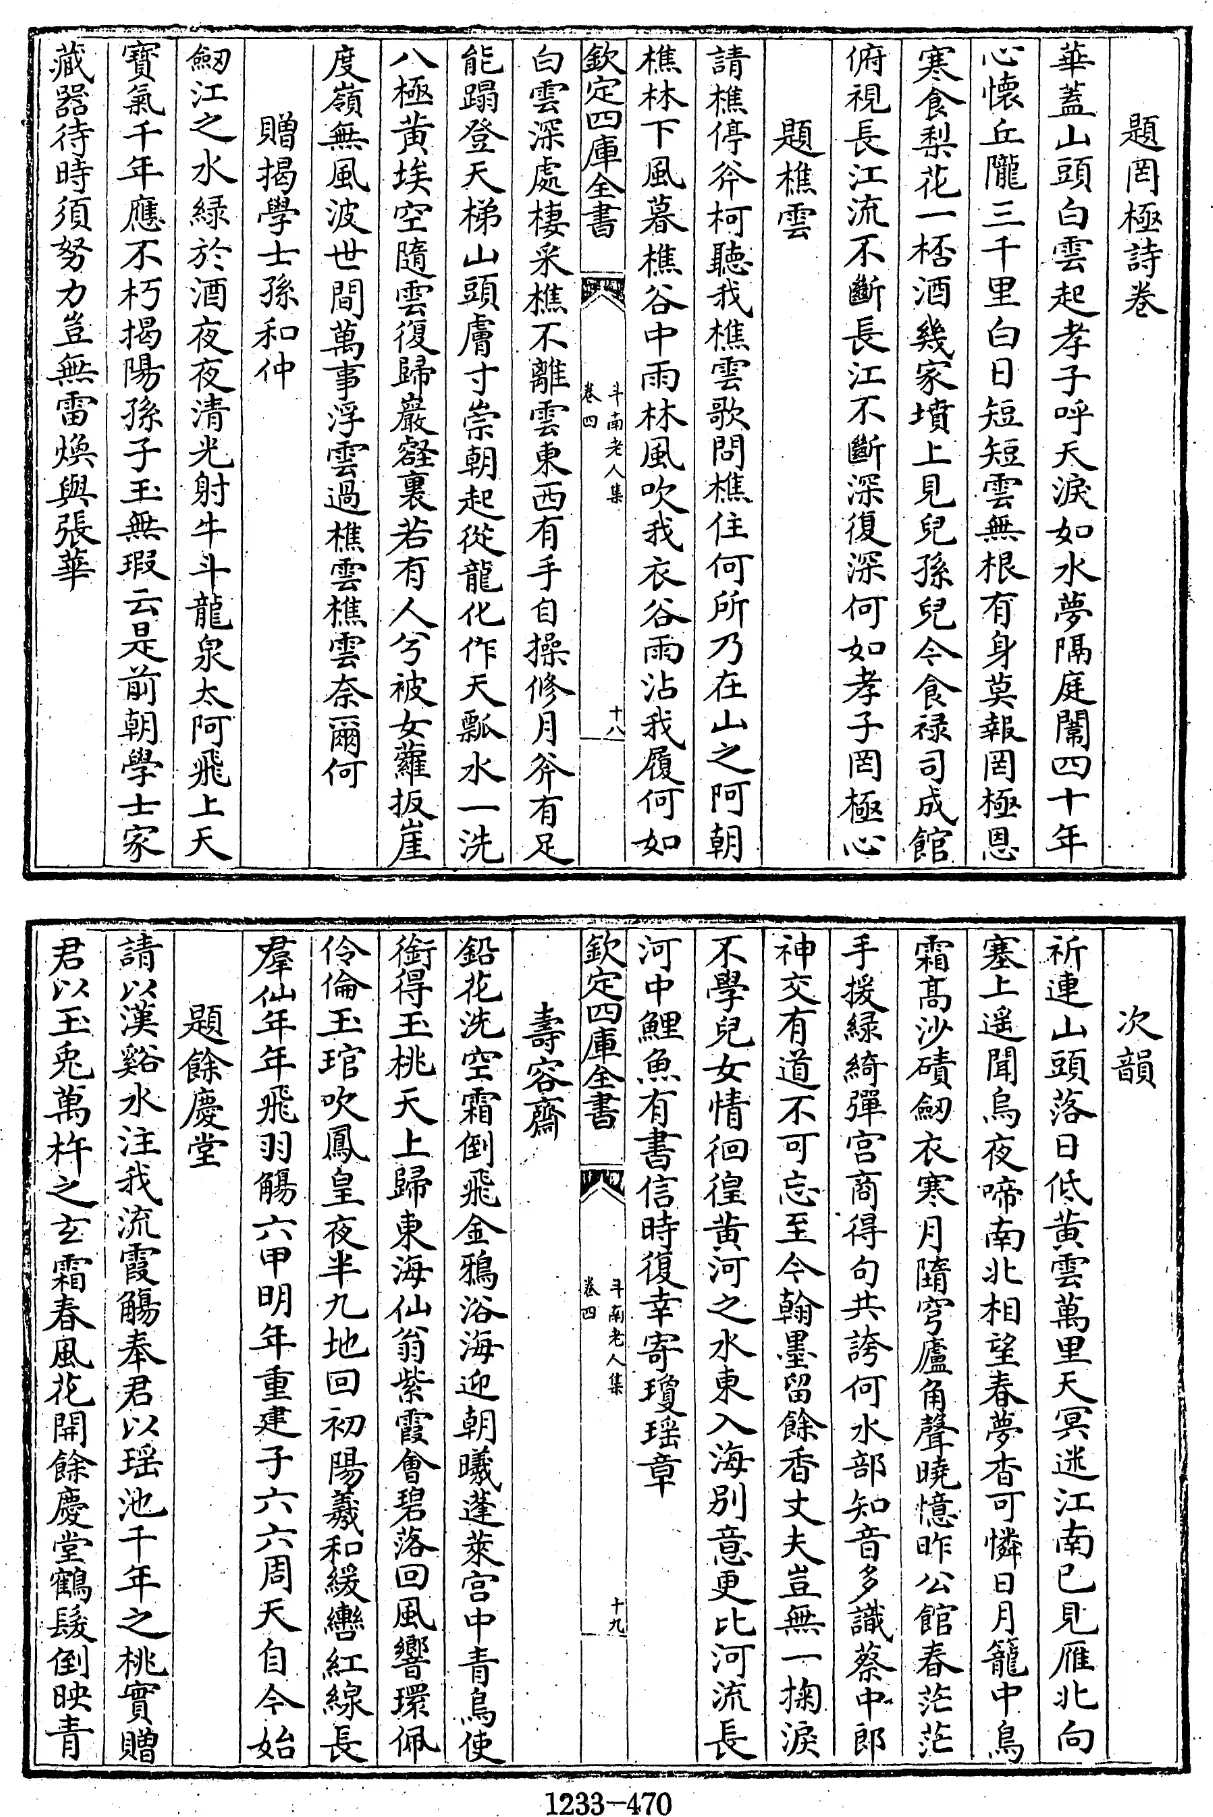 題罔極詩卷
華蓋山頭白雲起孝子呼天淚如水夢隔庭闈四十年
心懷丘隴三千里白日短短雲無根有身莫報罔極恩
寒食梨花一桮酒幾家墳上見兒孫兒今食禄司成館
俯視長江流不斷長江不斷深復深何如孝子罔極心
題樵雲
請樵停斧柯聽我樵雲歌問樵住何所乃在山之阿朝
樵林下風暮樵谷中雨林風吹我衣谷雨沾我履何如
欽定四庫全書
斗南老人集
卷四
十八
白雲深處棲采樵不離雲東西有手自操修月斧有足
能蹋登天梯山頭膚寸崇朝起從龍化作天瓢水一洗
八極黄埃空隨雲復歸巖壑裏若有人兮被女蘿扳崖
度嶺無風波世間萬事浮雲過樵雲樵雲奈爾何
贈揭學士孫和仲
劒江之水緑於酒夜夜清光射牛斗龍泉太阿飛上天
寳氣千年應不朽揭陽孫子玉無瑕云是前朝學士家
藏器待時須努力豈無雷煥與張華
次韻
祈連山頭落日低黄雲萬里天冥迷江南已見雁北向
塞上遥聞烏夜啼南北相望春夢杳可憐日月籠中鳥
霜髙沙磧劒衣寒月墮穹廬角聲曉憶昨公館春茫茫
手援緑綺彈宫商得句共誇何水部知音多識蔡中郎
神交有道不可忘至今翰墨留餘香丈夫豈無一掬淚
不學兒女情徊徨黄河之水東入海别意更比河流長
河中鯉魚有書信時復幸寄瓊瑶章
欽定四庫全書
斗南老人集
卷四
十九
壽容齋
鉛花洗空霜倒飛金鴉浴海迎朝曦蓬萊宫中青鳥使
銜得玉桃天上歸東海仙翁紫霞會碧落回風響環佩
伶倫玉琯吹鳳皇夜半九地回初陽羲和緩轡紅線長
羣仙年年飛羽觴六甲明年重建子六六周天自今始
題餘慶堂
請以漢谿水注我流霞觴奉君以瑶池千年之桃實贈
君以玉兎萬杵之玄霜春風花開餘慶堂鶴髮倒映青
1233—470